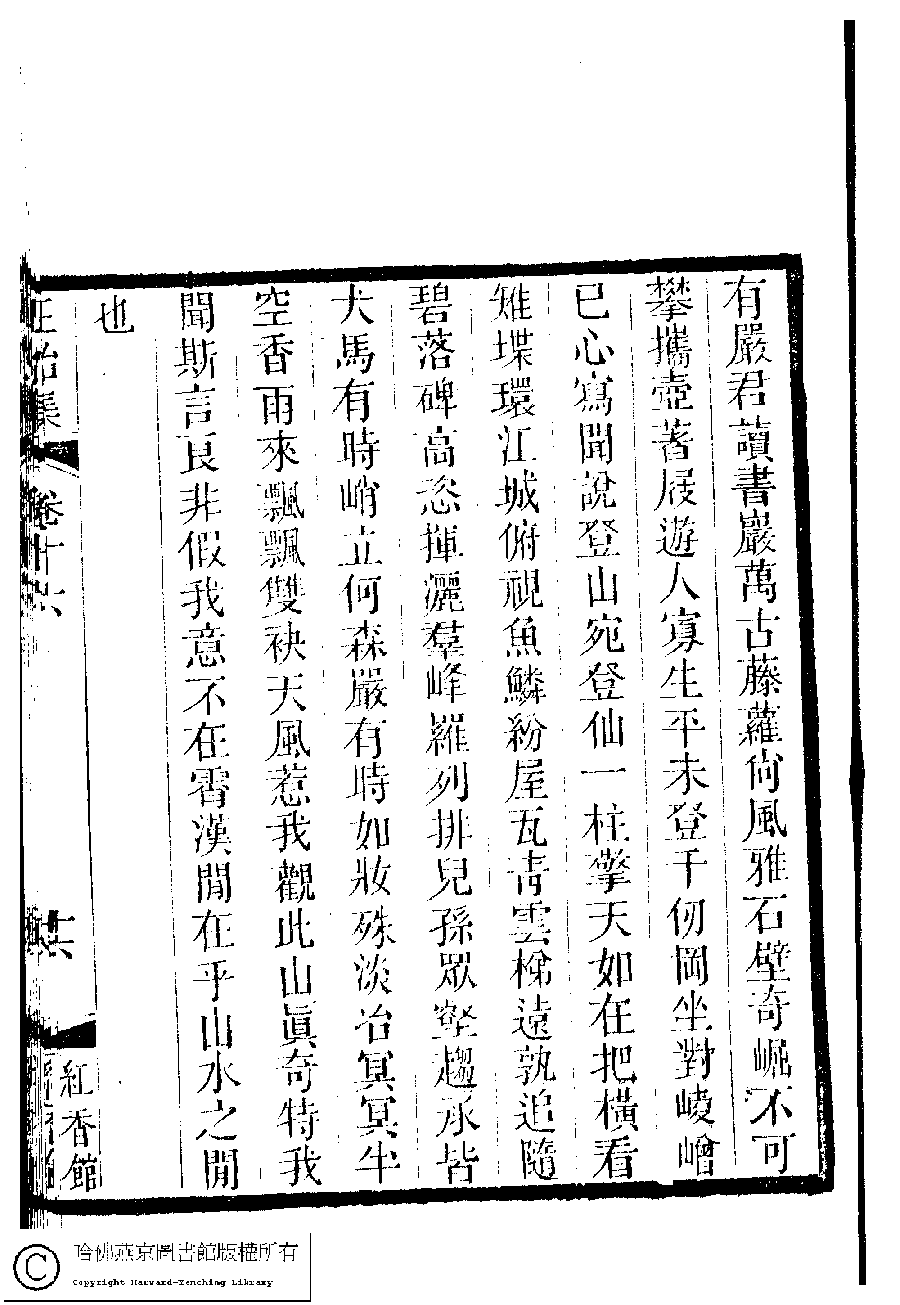 有嚴君讀書巖萬古藤蘿尙風雅石壁奇崛不可
攀攜壺著屐遊人寡生平未登千仞岡坐對崚嶒
已心寫聞說登山宛登仙一柱擎天如在把橫看
雉堞環江城俯視魚鱗紛屋瓦靑雲梯遠孰追隨
碧落碑高恣揮灑羣峰羅列排兒孫眾壑趨承皆
犬馬有時峭立何森嚴有時如妝殊淡冶冥冥半
空香雨來飄飄雙袂天風惹我觀此山眞奇特我
聞斯言良非假我意不在霄漢閒在乎山水之閒
也
卷十六
紅香館
哈佛燕京圖書館版權所有
Copyright Harvard-Yenching Library